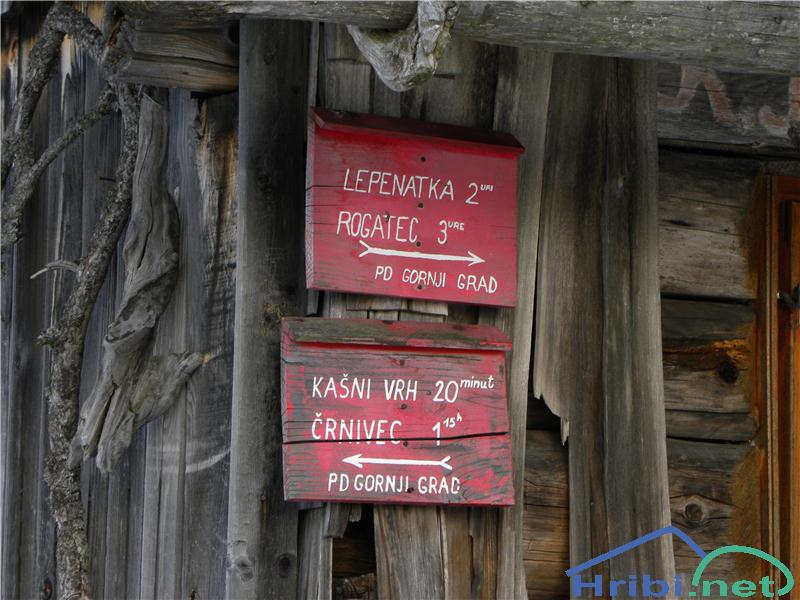 LEPENATKA 2 URI
ROGATEC 3 URE
PD GORNJI GRAD
KAŠNI VRH 20 minut
ČRNIVEC 1 15h
PD GORNJI GRAD
Hribi.net